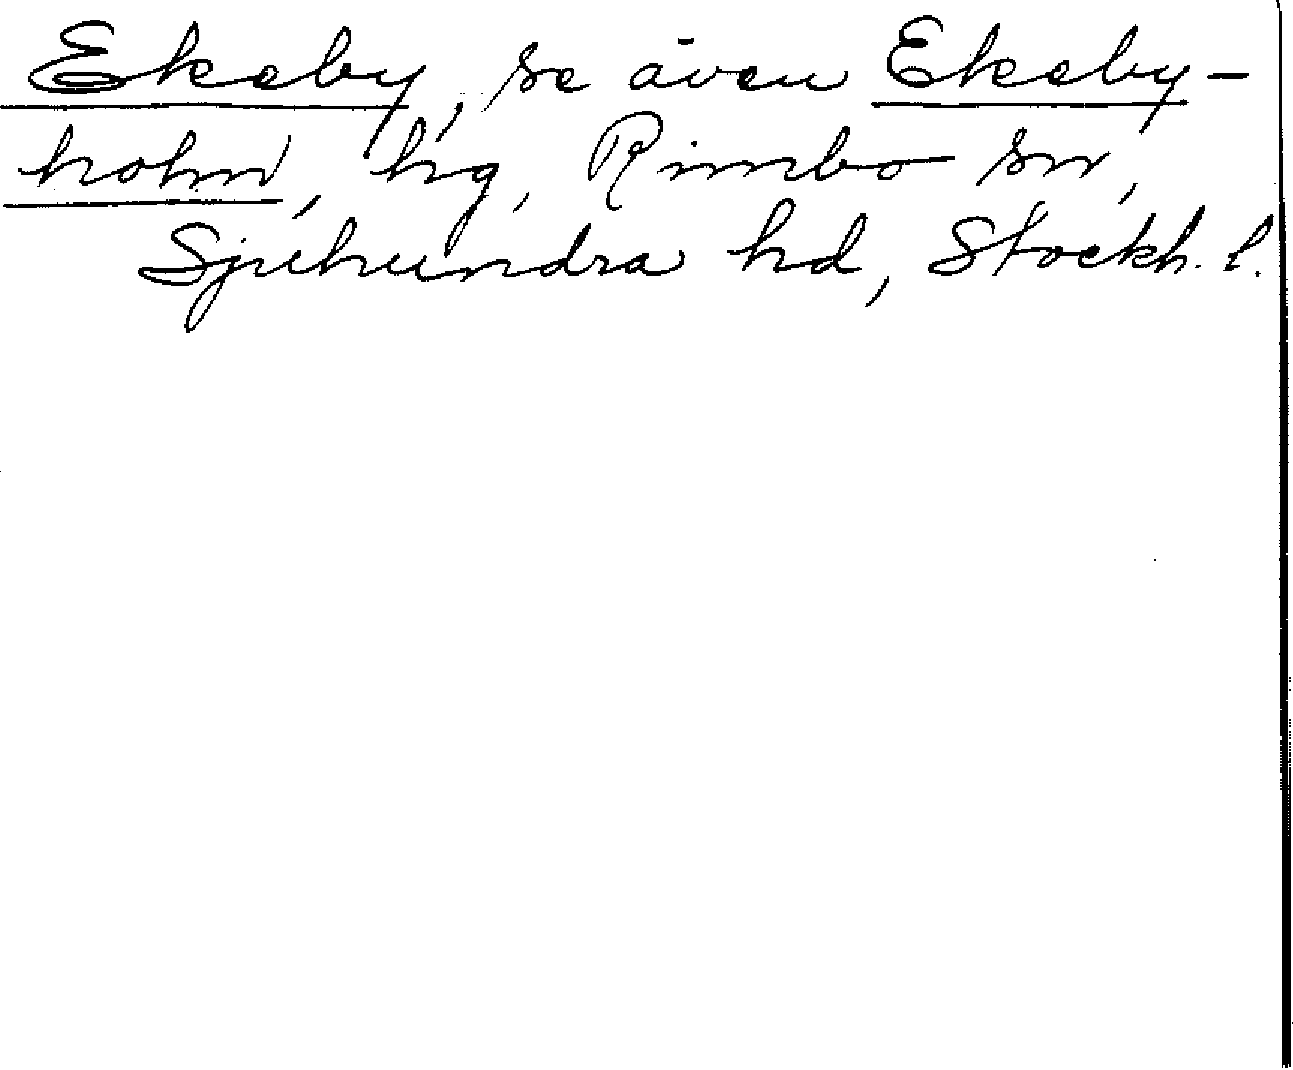 Ekeby, se även Ekeby-
holm, hg, Rimbo sn,
Sjuhundra hd, Stockh. l.